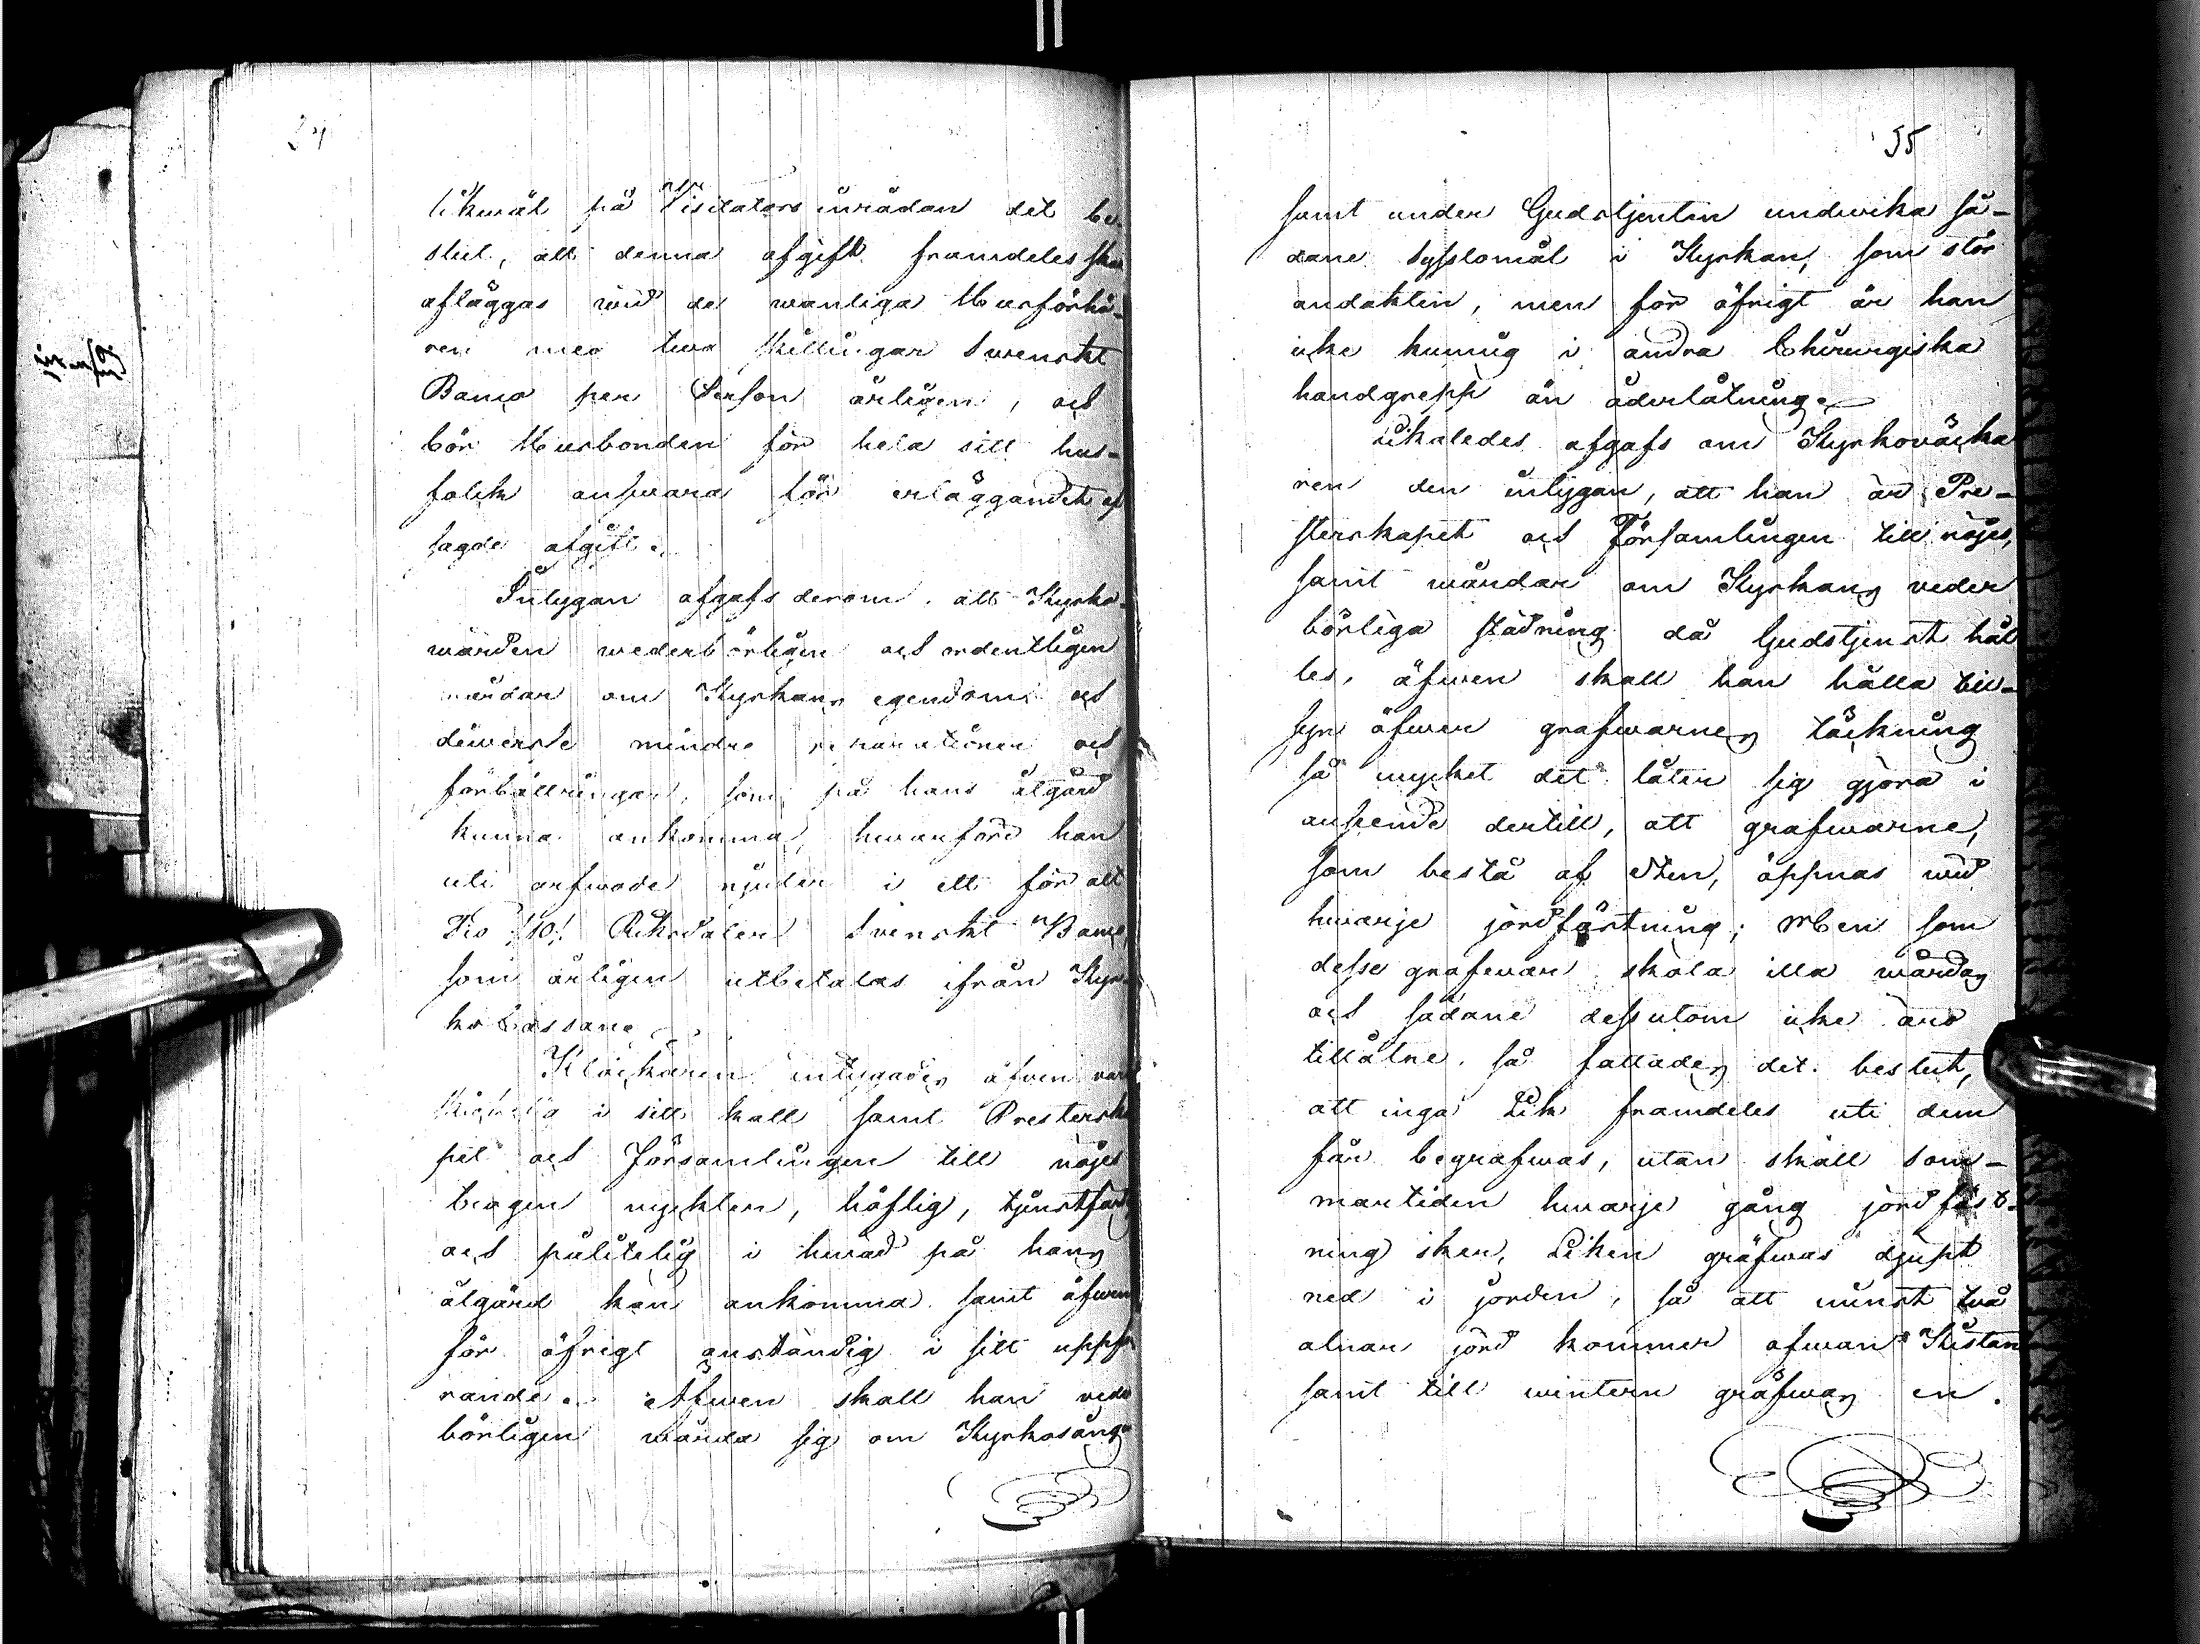 24
likmäl på Visitators inrådan det be-
slut, att denna afgift framdeles skall
afläggas wid de wanliga Husförhö-
ren med twå skillingar Swenskt
Banco per Person årligen, och
bör Husbonden för hela sitt hus-
folck answara för erläggandet af
sagde afgift.
Intygan afgafs derom, att Kyrko-
wärden wederbörligen och ordentligen
wårdar om Kyrkans egendom och
diwerse mindre reparationer och
förbättringar, som på hans åtgärd
kunna ankomma, hwarföre han
uti arfwode njuter i ett för allt
Tio /10/ Riksdaler Svenskt Banco,
som årligen utbetalas ifrån Kyr-
ko Cassan.
Klockaren intygades äfven vara
skickelig i sitt kall samt Presterska-
pet och Församlingen till nöjes
bragen nyckter, höflig, tjenstfärdig
och pålitelig i hwad på hans
åtgärd kan ankomma samt äfwen
för öfrigt anständig i sitt uppfö-
rande. Äfwen skall han veder-
börligen wårda sig om Kyrkosång
35
samt under Gudstjensten undvika så-
dane sysslomål i Kyrkan, som stör
andakten, men för öfrigt är han
icke kunnig i andra Chirurgiska
handgrepp än åderlåtning.
Likaledes afgafs om Kyrkoväcka
ren den intygan, att han är Pre-
sterskapet och Församlingen till nöjes,
samt wårdar om Kyrkans veder
börliga städning då Gudstjenst hål
les, äfwen skall han hålla till-
syn öfwer grafwarnes täckning
så mycket det låter sig gjöra i
anseende dertill, att grafwarne,
som bestå af sten, öppnas wid
hwarje jordfästning; Men som
desse grafwar skola illa wårdas
och sådane dessutom icke äro
tillåtne, så fattades det beslut,
att inga Lik framdeles uti dem
får begrafwas, utan skall som-
martiden hwarje gång jordfäst-
ning sker, Liken gräfwas djupt
ned i jorden, så att minst två
alnar jord kommer ofwan Kistan
samt till wintern gräfwas en